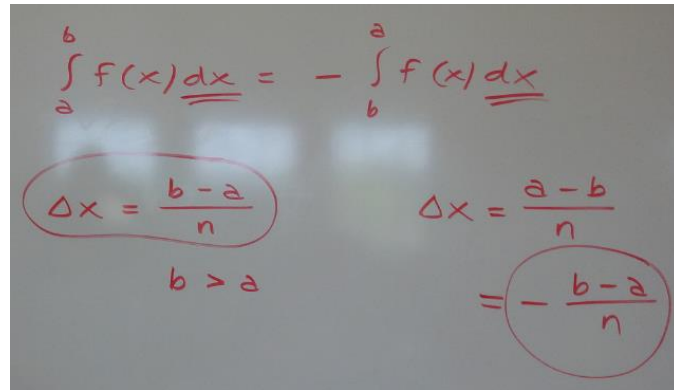 ∫_a^b f(x) dx = - ∫_b^a f(x) dx
Δx = (b - a)/n
b > a
Δx = (a - b)/n
= - (b - a)/n